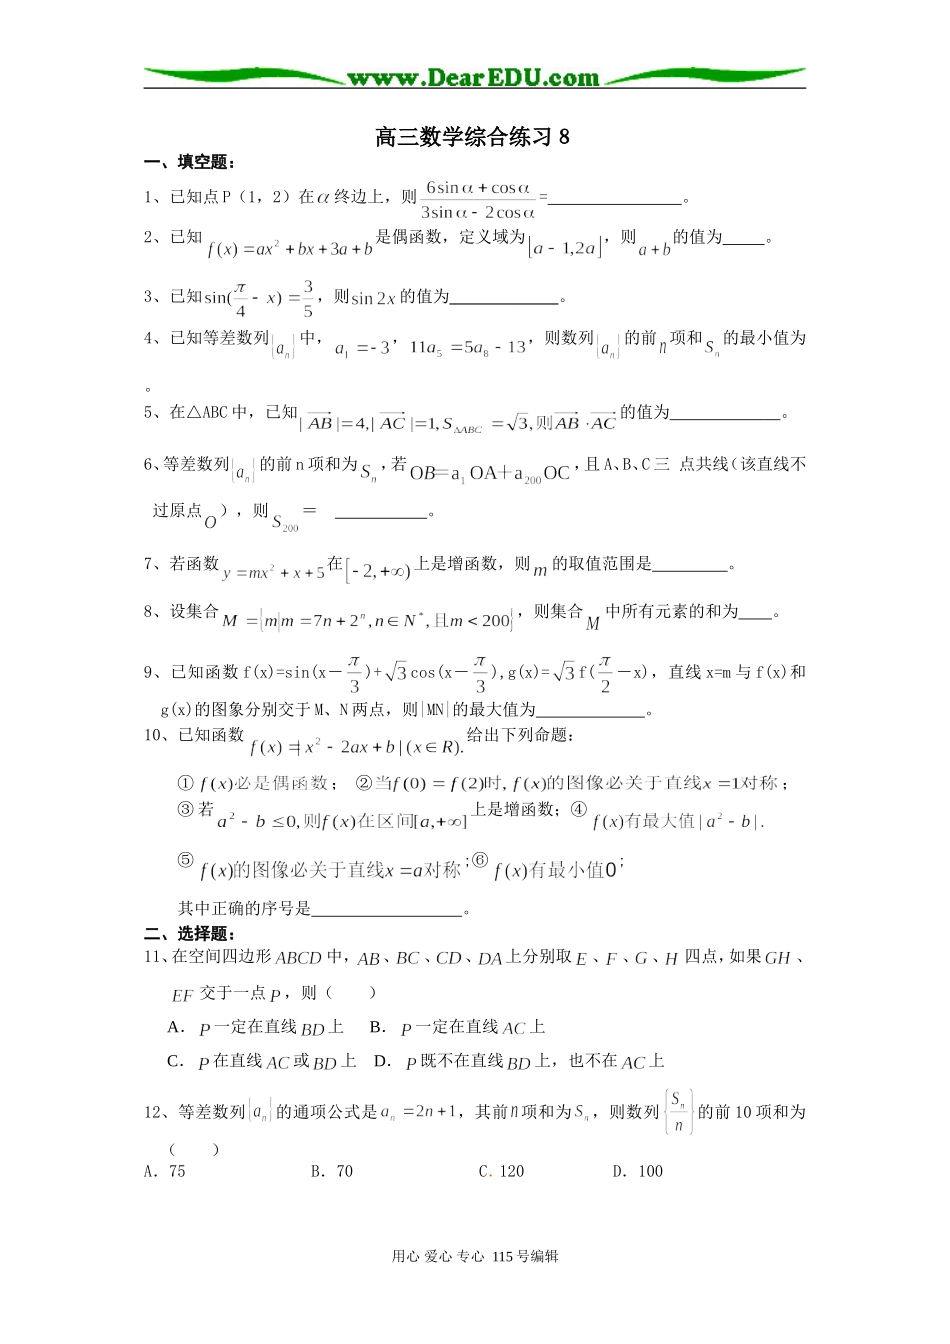 www.DearEDU.com
高三数学综合练习 8
一、填空题：
1、已知点 P（1，2）在 α 终边上，则 (6sinα+cosα)/(3sinα−2cosα) =________。
2、已知 f(x)=ax²+bx+3a+b 是偶函数，定义域为 [a−1,2a]，则 a+b 的值为____。
3、已知 sin(π/4 − x) = 3/5，则 sin2x 的值为________。
4、已知等差数列{aₙ}中，a₁=−3，11a₅=5a₈−13，则数列{aₙ}的前 n 项和 Sₙ 的最小值为
。
5、在△ABC 中，已知 |AB|=4,|AC|=1,S△ABC=√3,则AB·AC 的值为________。
6、等差数列{aₙ}的前 n 项和为 Sₙ,若 OB=a₁OA+a₂₀₀OC,且 A、B、C 三 点共线（该直线不
过原点 O），则 S₂₀₀＝ ________。
7、若函数 y=mx²+x+5 在 [−2,+∞) 上是增函数，则 m 的取值范围是________。
8、设集合 M={m|m=7n+2ⁿ,n∈N*,且m<200}，则集合 M 中所有元素的和为____。
9、已知函数 f(x)=sin(x－π/3)+√3cos(x－π/3),g(x)=√3f(π/2－x)，直线 x=m 与 f(x)和
g(x)的图象分别交于 M、N 两点，则|MN|的最大值为________。
10、已知函数 f(x)=|x²−2ax+b|(x∈R). 给出下列命题：
① f(x)必是偶函数； ②当f(0)=f(2)时,f(x)的图像必关于直线x=1对称；
③ 若 a²−b≤0,则f(x)在区间[a,+∞]上是增函数；④ f(x)有最大值|a²−b|.
⑤ f(x)的图像必关于直线x=a对称；⑥ f(x)有最小值0；
其中正确的序号是________。
二、选择题：
11、在空间四边形 ABCD 中，AB、BC、CD、DA 上分别取 E、F、G、H 四点，如果 GH、
EF 交于一点 P，则（ ）
A．P 一定在直线 BD 上 B．P 一定在直线 AC 上
C．P 在直线 AC 或 BD 上 D．P 既不在直线 BD 上，也不在 AC 上
12、等差数列{aₙ}的通项公式是 aₙ=2n+1，其前 n 项和为 Sₙ，则数列{Sₙ/n}的前 10 项和为
（ ）
A．75 B．70 C．120 D．100
用心 爱心 专心 115 号编辑